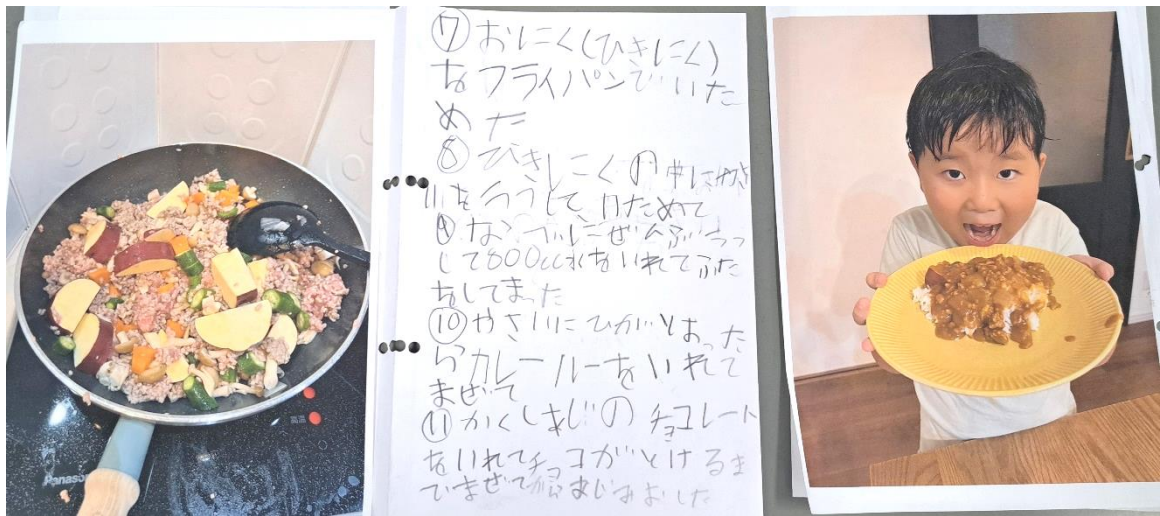 Panaso
⑦おにく(ひきにく)
をフライパンでいた
めた
⑧ひきにくの中にやさ
いをうつして、いためて
⑨なべにぜんぶうつ
して800cc水をいれてふた
をしてまった
⑩やさいにひがとおった
らカレールーをいれて
まぜて
⑪かくしあじのチョコレート
をいれてチョコがとけるま
でまぜて
あじみをした